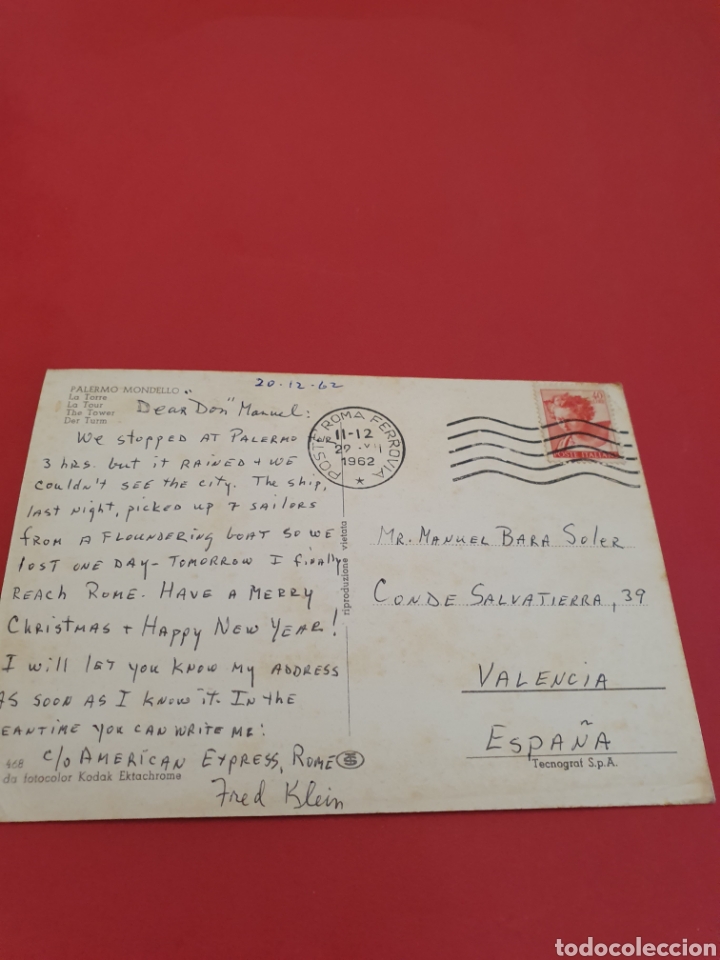 PALERMO MONDELLO
La Torre
La Tour
The Tower
Der Turm
20-12-62
Dear "Don" Manuel:
We stopped at Palermo for
3 hrs. but it rained + we
couldn't see the city. The ship,
last night, picked up 7 sailors
from a floundering boat so we
lost one day - tomorrow I finally
reach Rome. Have a Merry
Christmas + Happy New Year!
I will let you know my address
as soon as I know it. In the
meantime you can write me:
c/o American Express, Rome
Fred Klein
468
da fotocolor Kodak Ektachrome
riproduzione vietata
POSTE ROMA FERROVIA
11-12
1962
40
POSTE ITALIANE
Mr. Manuel Bara Soler
Conde Salvatierra, 39
Valencia
España
Tecnograf S.p.A.
todocoleccion